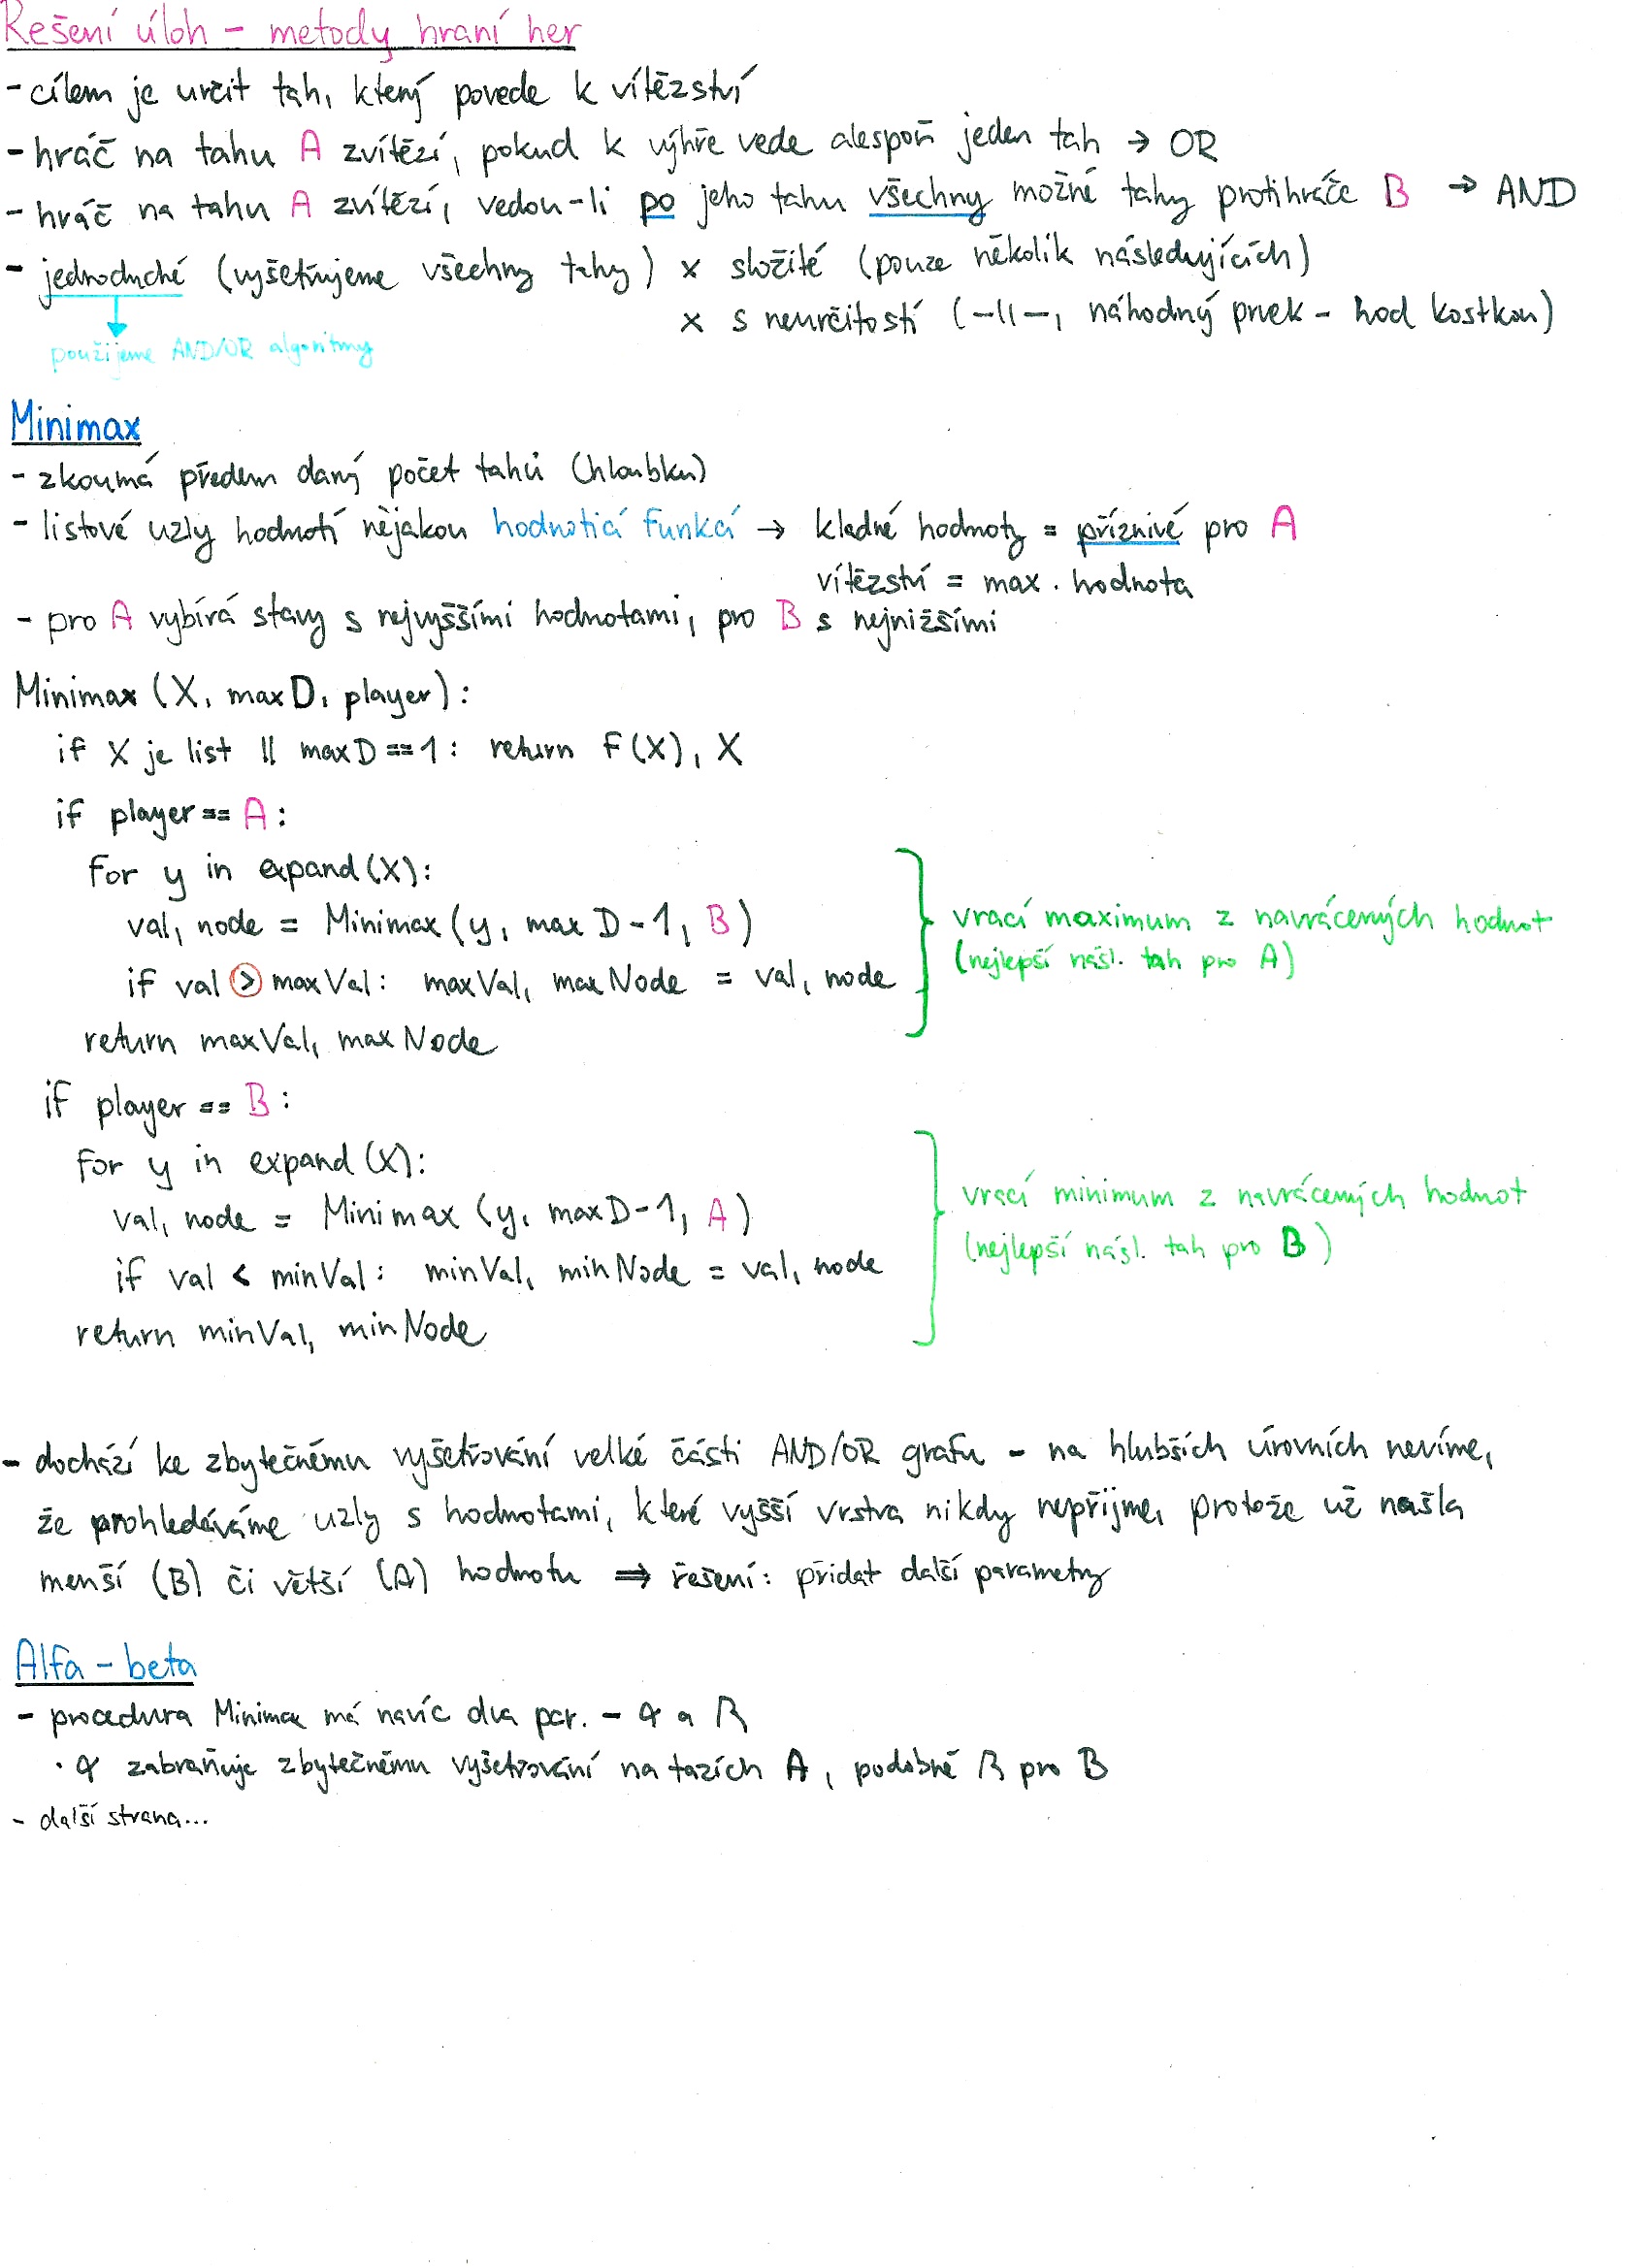 Řešení úloh – metody hraní her
- cílem je určit tah, který povede k vítězství
- hráč na tahu A zvítězí, pokud k výhře vede alespoň jeden tah → OR
- hráč na tahu A zvítězí, vedou-li po jeho tahu všechny možné tahy protihráče B → AND
- jednoduché (vyšetřujeme všechny tahy) x složité (pouze několik následujících)
x s neurčitostí (-||-, náhodný prvek - hod kostkou)
použijeme AND/OR algoritmy
Minimax
- zkoumá předem daný počet tahů (hloubku)
- listové uzly hodnotí nějakou hodnotící funkcí → kladné hodnoty = příznivé pro A
vítězství = max. hodnota
- pro A vybírá stavy s nejvyššími hodnotami, pro B s nejnižšími
Minimax (X, maxD, player):
if X je list || maxD == 1: return f(X), X
if player == A:
for y in expand(X):
val, node = Minimax (y, maxD-1, B)
if val > maxVal: maxVal, maxNode = val, node
return maxVal, maxNode
vrací maximum z navrácených hodnot
(nejlepší násl. tah pro A)
if player == B:
for y in expand (X):
val, node = Minimax (y, maxD-1, A)
if val < minVal: minVal, minNode = val, node
return minVal, minNode
vrací minimum z navrácených hodnot
(nejlepší násl. tah pro B)
- dochází ke zbytečnému vyšetřování velké části AND/OR grafu - na hlubších úrovních nevíme,
že prohledáváme uzly s hodnotami, které vyšší vrstva nikdy nepřijme, protože už našla
menší (B) či větší (A) hodnotu ⇒ řešení: přidat další parametry
Alfa-beta
- procedura Minimax má navíc dva par. - α a β
· α zabraňuje zbytečnému vyšetřování na tazích A, podobně β pro B
- další strana...